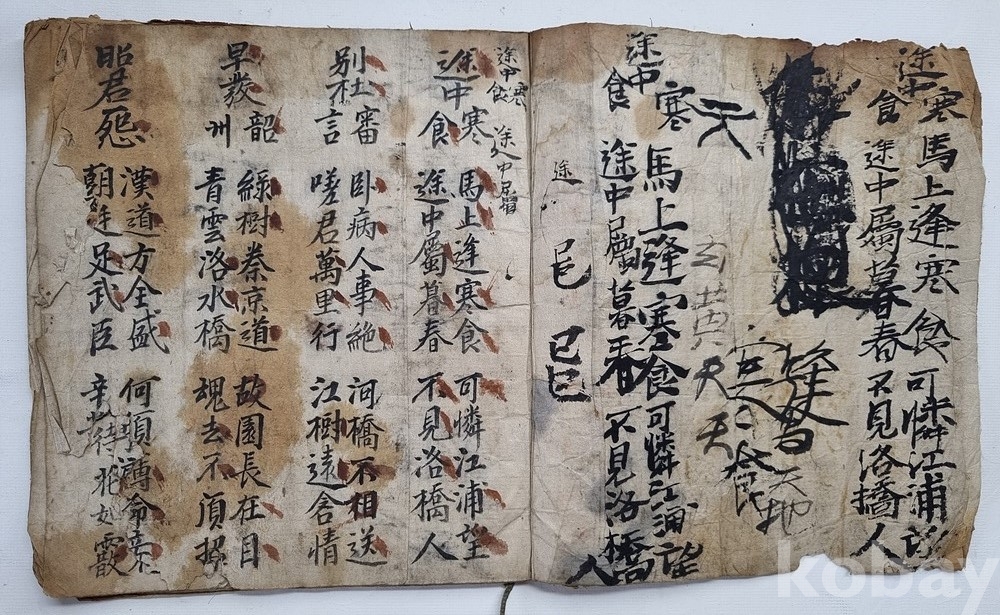 途中寒食
馬上逢寒食
途中屬暮春
可憐江浦望
不見洛橋人
天地
天
玄黃
天
天
途中寒食
馬上逢寒食
途中屬暮春
可憐江浦望
不見洛橋人
途
途中寒食
途中屬
途中寒食
馬上逢寒食
途中屬暮春
可憐江浦望
不見洛橋人
別杜審言
卧病人事絶
嗟君萬里行
河橋不相送
江樹遠含情
早發韶州
綠樹秦京道
青雲洛水橋
故園長在目
魂去不須招
昭君怨
漢道方全盛
朝廷足武臣
何須薄命妾
辛苦